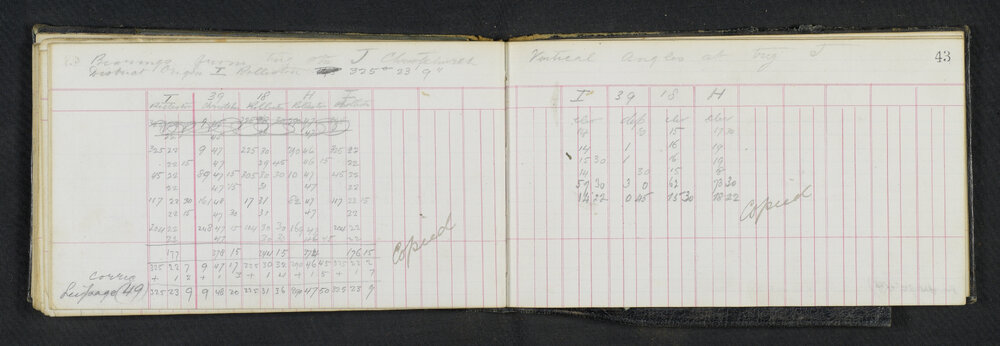 Bearings from trig stn J Christchurch
District Origin I Rolleston 325° 23' 9"
I 39 18 H I
Rolleston Rolleston Rolleston
325 22 9 47 225 30 290 46 325 22
22 15 47 29 45 46 15 22
45 22 89 47 15 305 30 30 10 47 45 22
22 47 15 31 47 22
117 22 30 161 48 17 31 82 47 117 22 15
22 15 47 30 31 47 22
204 22 248 47 15 104 30 30 169 47 204 22
22 47 30 30 46 45 22
177 378 15 244 15 374 176 15
325 22 7 9 47 17 225 30 32 290 46 45 325 22 2
Corrn + 1 2 + 1 3 + 1 4 + 1 5 + 1 7
See page (49) 325 23 9 9 48 20 225 31 36 290 47 50 325 23 9
Copied
Vertical Angles at trig J
43
I 39 18 H
elev dep elev elev
14 8 15 17 30
14 1 16 19
15 30 1 16 19
14 30 15 18
59 30 3 0 62 73 30
14 22 0 45 15 30 18 22
Copied